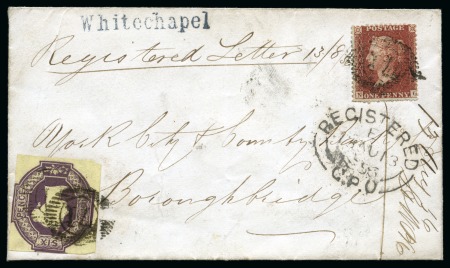 Whitechapel
Registered Letter 13/8
POSTAGE
ONE PENNY
REGISTERED
G.P.O.
York City & County Bank
Boroughbridge
SIX PENCE